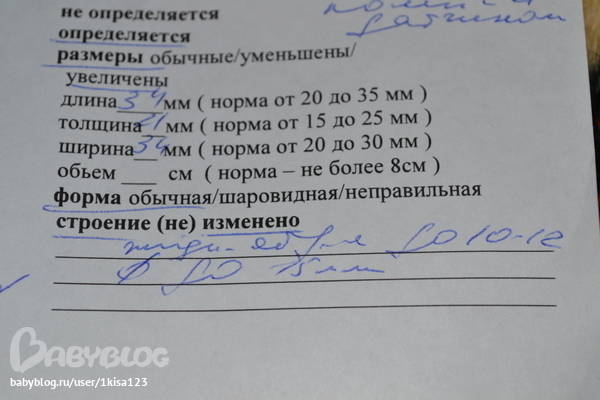 не определяется
датчиком
определяется
размеры обычные/уменьшены/
увеличены
длина 34 мм ( норма от 20 до 35 мм )
толщина 21 мм ( норма от 15 до 25 мм )
ширина 34 мм ( норма от 20 до 30 мм )
обьем ___ см ( норма – не более 8см )
форма обычная/шаровидная/неправильная
строение (не) изменено
до 10-12
до 15 мм
BABYBLOG
babyblog.ru/user/1kisa123